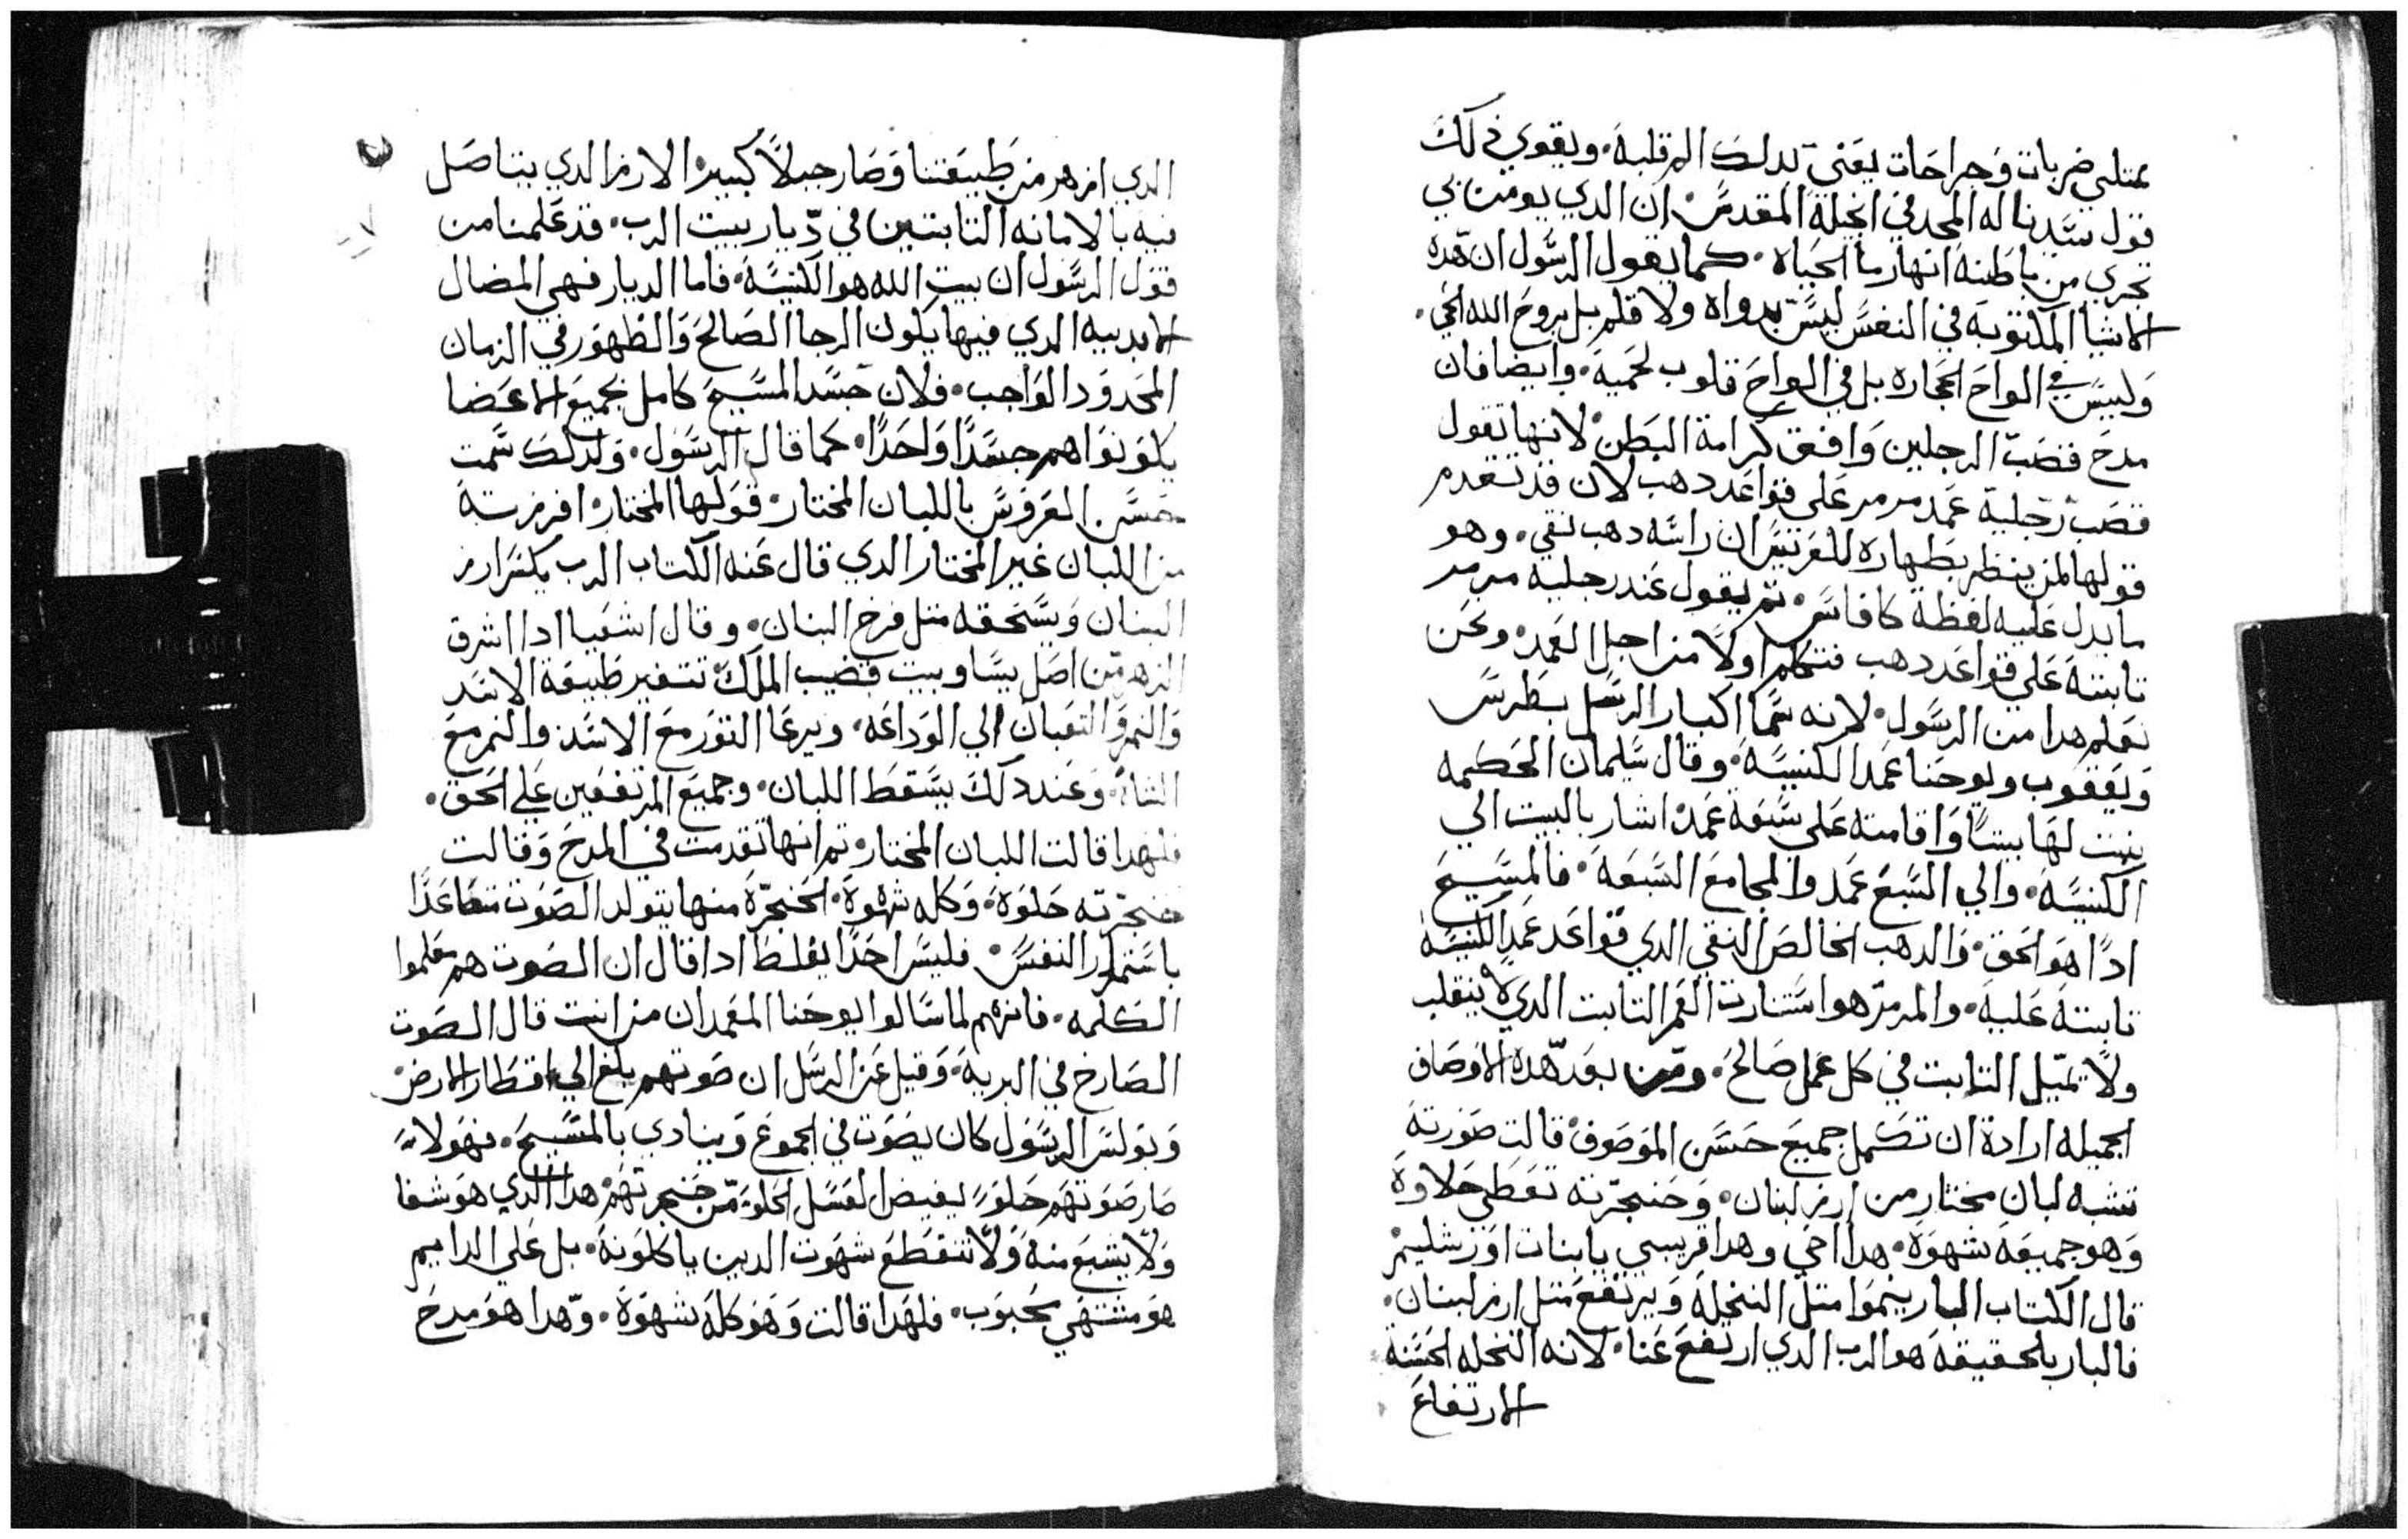 عتلي ضربات وجراحات يعني بدلك الرقلبة. ويقوي دلك
قول سيدنا له المجد في انجيلة المقدس. ان الدي يومن بي
تجري من باطنه انهار ما الحياه. كما يقول الرسول ان هده
الاشيا المكتوبه في النفس ليس بدواه ولا قلم بل بروح الله الحي.
وليس في الواح الحجاره بل في الواح قلوب لحمية. وايضا فان
مدح قصب الرجلين وافق كرامة البطن. لانها تقول
قصب رجلية عمد مرمر على قواعد دهب لان قد تقدم
قولها لمن ينظر بطهاره للعريس ان راسه دهب نقي. وهو
ما يدل عليه لفظة كافاس. تم يقول عند رجليه مرمر
تابتة على قواعد دهب فنتكلم اولا من اجل العمد. ونحن
نعلم هدا من الرسول. لانه سما اكبار الرسل بطرس
ويعقوب ويوحنا عمد الكنيسة. وقال سليمان الحكيمه
بنت لها بيتا واقامته على سبعة عمد. اشار بالبيت الي
الكنيسة. والي السبع عمد والمجامع السبعة. فالمسيح
ادا هو الحق. والدهب الخالص النقي الدي قواعد عمد الكنيسه
تابتة عليه. والمرمر هو استنارت الفم التابت الدي لا ينقلب
ولا يميل التابت في كل عمل صالح. ومن بعد هده الاوصاف
الجميله ارادة ان تكمل جميع حسن الموصوف. قالت صورته
تشبه لبان مختار من ارز لبنان. وحنجرته تعطي حلاوة
وهو جميعه شهوة. هدا اخي وهدا قريبي يا بنات اورشليم.
قال الكتاب البار ينموا متل النخلة ويرتفع متل ارز لبنان.
فالبار بالحقيقة هو الرب الدي ارتفع عنا. لانه النخله الحسنة
الارتفاع
الدي ازهر من طبيعتنا وصار جبلا كبير. الارز الدي يتاصل
فيه بالامانه التابتين في ديار بيت الرب. قد علمنا من
قول الرسول ان بيت الله هو الكنيسة. فاما الديار فهي المضال
الابديه الدي فيها يكون الرجا الصالح والظهور في الزمان
المحدود الواجب. فلان جسد المسيح كامل بجميع الاعضا
يكونوا هم جسدا واحدا. كما قال الرسول. ولدلك سمت
حسن العروس باللبان المختار. قولها المختار. افرزته
من اللبان غير المختار الدي قال عنه الكتاب الرب يكسر ارز
البنان ويسحقه متل فرخ البنان. وقال اشعيا ادا اشرق
الزهر من اصل يسا وبيت قضيب الملك تتغير طبيعة الاسد
والنمر والتعبان الي الوداعه. ويرعا التور مع الاسد والنمر مع
الشاة. وعند دلك يسقط اللبان. وجميع المرتفعين علي الحق.
فلهدا قالت اللبان المختار. تم انها تقدمت في المدح وقالت
حنجرته حلوة. وكله شهوة. الحنجرة منها يتولد الصوت متصاعدا
باستمرار النفس. فليس احدا يغلط ادا قال ان الصوت هم معلموا
الكلمه. فانهم لما سالوا يوحنا المعمدان من انت قال الصوت
الصارخ في البرية. وقيل عن الرسل ان صوتهم بلغ الي اقطار الارض.
وبولس الرسول كان يصوت في الجموع وينادي بالمسيح. فهولاء
صار صوتهم حلو. ليفيض العسل الحلو من حنجرتهم. هدا الدي هو شفا
ولا يشبع منه ولا تنقطع شهوت الدين ياكلونه. بل على الدايم
هو مشتهي محبوب. فلهدا قالت وهو كله شهوة. وهدا هو مدح